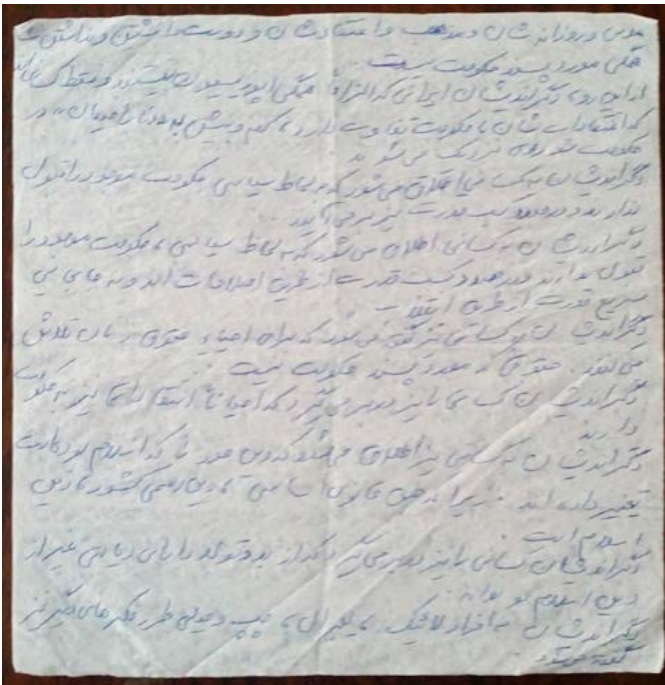 مدنی و روزانه شان و مذهب و اعتقادشان و دوست داشتن و نداشتن
همگی مورد پسند حکومت نیست.
از این رو، دگراندیشان ایرانی که الزاماً همگی اپوزیسیون نیستند و فقط کسانی‌اند
که اعتقاداتشان با حکومت تفاوت دارد، کم و بیش به "ناراضیان" در
حکومت شوروی نزدیک می شوند.
دگراندیشان به کسانی اطلاق می شود که به لحاظ سیاسی حکومت موجود را قبول
ندارند و درصدد کسب قدرت نیز بر می آیند.
دگراندیشان به کسانی اطلاق می شود که به لحاظ سیاسی، حکومت موجود را
قبول ندارند و درصدد کسب قدرت از طریق اصلاحات اند و نه جابجایی
سریع قدرت از طریق انقلاب.
دگراندیشان به کسانی نیز گفته می شود که برای احیاء حقوق زنان تلاش
می کنند. حقوقی که مورد پسند حکومت نیست.
دگراندیشان کسانی را نیز در بر می گیرد که احیاناً انتقاداتی نیز به حکومت
دارند.
دگراندیشان به کسانی نیز اطلاق می شود که دین خود را که اسلام بوده است
تغییر داده اند. زیرا بر طبق قانون اساسی، دین رسمی کشور، دین
اسلام است.
دگراندیشان کسانی را نیز در بر می گیرد که از بدو تولد دارای دیانتی غیر از
دین اسلام بوده اند.
دگراندیشان به افراد لائیک، لیبرال، چپ و دارای طرز فکرهای دیگر نیز
گفته می شود.